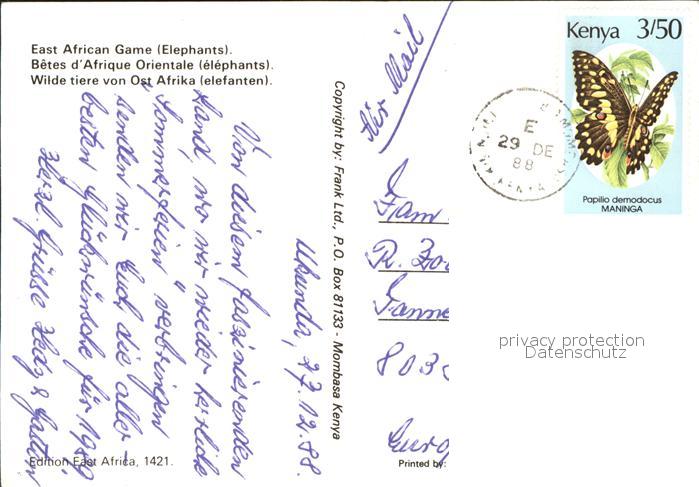 East African Game (Elephants).
Bêtes d'Afrique Orientale (éléphants).
Wilde tiere von Ost Afrika (elefanten).
Ukunda, 27.12.88.
Von diesem faszinierenden
Land, wo wir wieder herrliche
"Sommerferien" verbringen
senden wir Euch die aller-
besten Glückwünsche für 1989
Herzl. Grüsse Hedy &
Edition East Africa, 1421.
Copyright by: Frank Ltd., P.O. Box 81133 - Mombasa Kenya
Air Mail
Fam
R.
803
Printed by:
Kenya 3/50
Papilio demodocus
MANINGA
E
29 DE
88
KENYA
privacy protection
Datenschutz